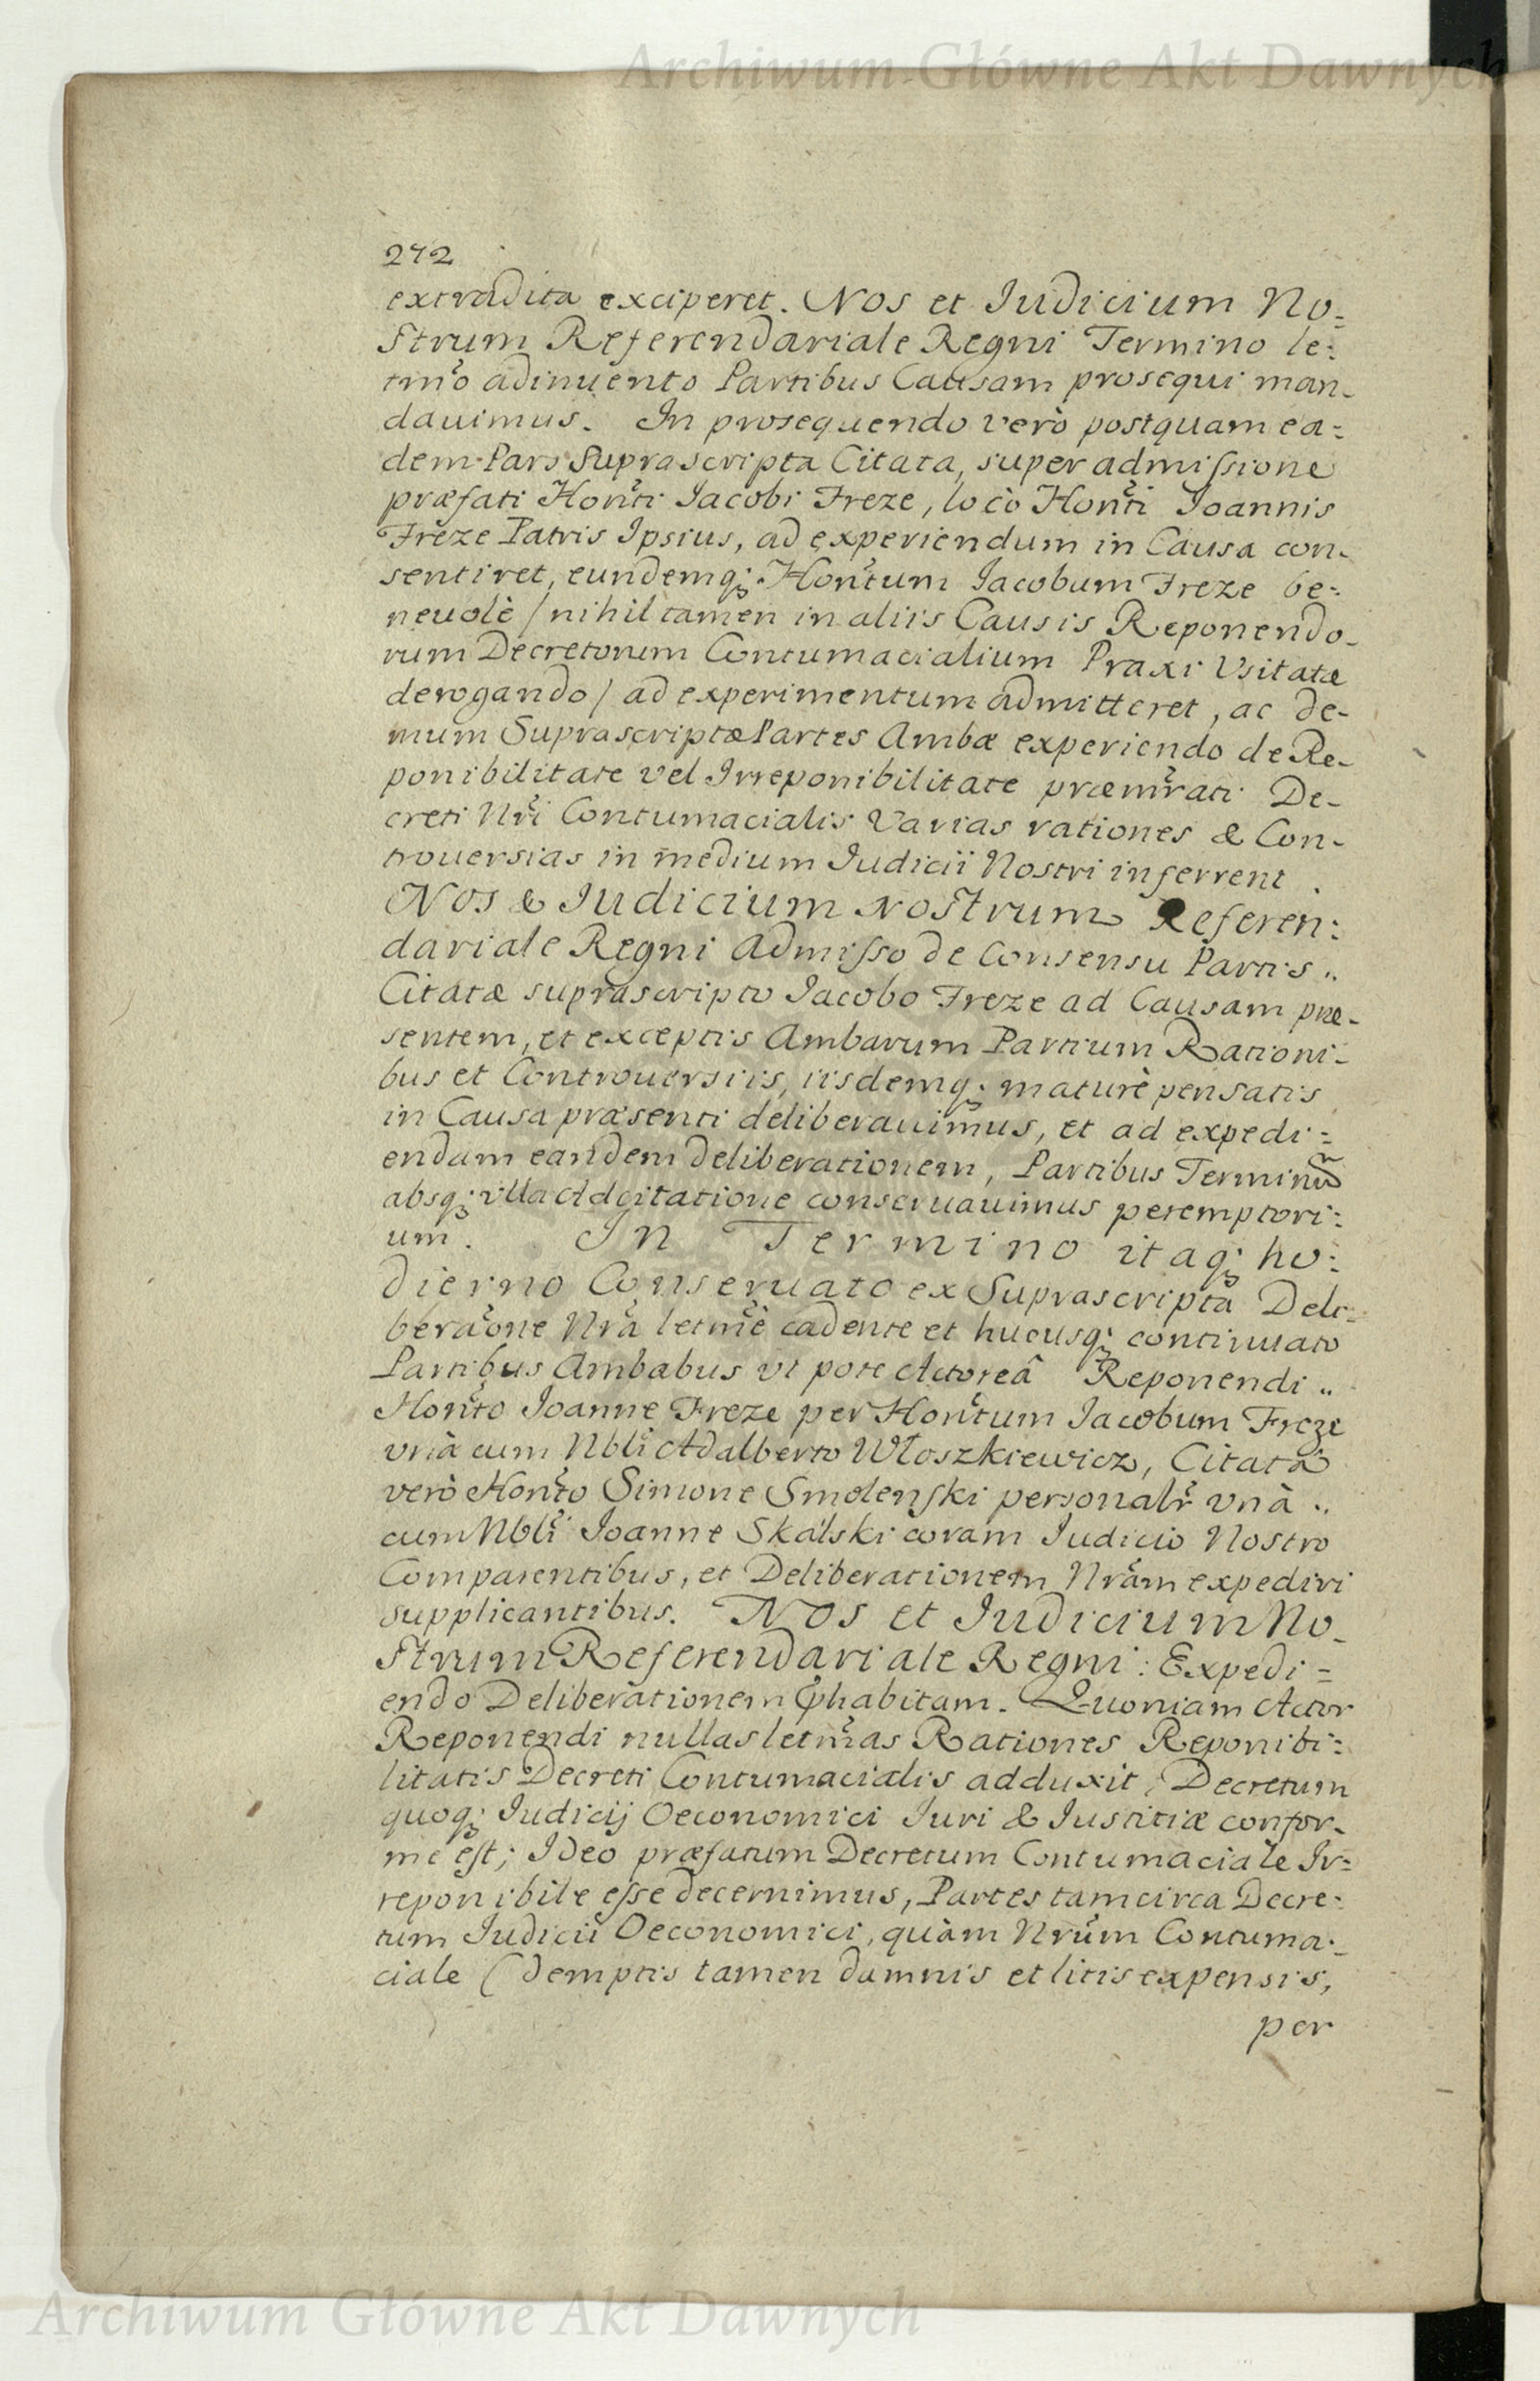 Archiwum Główne Akt Dawnych
272
extradita exciperet. Nos et Iudicium No=
strum Referendariale Regni Termino le=
tmõ adinuento Partibus Causam prosequi man-
dauimus. In prosequendo verò postquam ea=
dem Pars Suprascripta Citata, super admissione
præfati Honti Iacobi Freze, locò Honti Joannis
Freze Patris Ipsius, ad experiendum in Causa con-
sentiret, eundemq; Hontum Iacobum Freze be=
neuolè / nihil tamen in aliis Causis Reponendo-
rum Decretorum Contumacialium Praxi Vsitatæ
derogando / ad experimentum admitteret, ac de-
mum Suprascriptæ Partes Ambæ experiendo de Re-
ponibilitate vel Irreponibilitate præmrati De-
creti Nri Contumacialis Varias rationes & Con-
trouersias in medium Iudicii Nostri inferrent.
Nos & Iudicium Nostrum Referen=
dariale Regni Admisso de Consensu Partis
Citatæ suprascripto Iacobo Freze ad Causam præ-
sentem, et exceptis Ambarum Partium Rationi-
bus et Controuersiis, iisdemq; maturè pensatis
in Causa præsenti deliberauimus, et ad expedi=
endam eandem deliberationem, Partibus Terminum
absq; vlla Adcitatione conseruauimus peremptori=
um. In Termino itaq; ho=
dierno Conseruato ex Suprascripta Deli=
beraone Nra letmè cadente et hucusq; continuato
Partibus Ambabus vt pote Actoreâ Reponendi
Honto Joanne Freze per Hontum Iacobum Freze
vnà cum Nbli Adalberto Włoszkiewicz, Citatâ
verò Honto Simone Smolenski personalr vnà
cum Nbli Joanne Skalski coram Iudicio Nostro
Comparentibus, et Deliberationem Nram expediri
supplicantibus. Nos et Iudicium No-
strum Referendariale Regni: Expedi=
endo Deliberationem præhabitam. Quoniam Actor
Reponendi nullas letmas Rationes Reponibi=
litatis Decreti Contumacialis adduxit, Decretum
quoq; Iudicij Oeconomici Iuri & Iustitiæ confor-
me est; Ideo præfatum Decretum Contumaciale Ir=
reponibile esse decernimus, Partes tam circa Decre=
tum Iudicii Oeconomici, quàm Nrum Contuma=
ciale (demptis tamen damnis et litis expensis,
per
Archiwum Główne Akt Dawnych